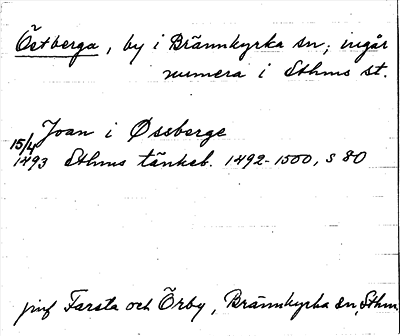 Östberga, by i Brännkyrka sn; ingår
numera i Sthms st.
Joan i Øseberge
15/4 1493 Sthms tänkeb. 1492-1500, s 80
jmf Farsta och Örby, Brännkyrka sn, Sthm